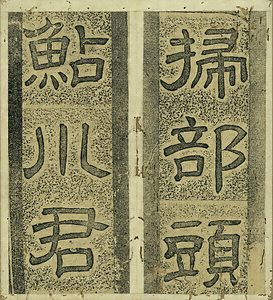 掃部頭
鮎川君